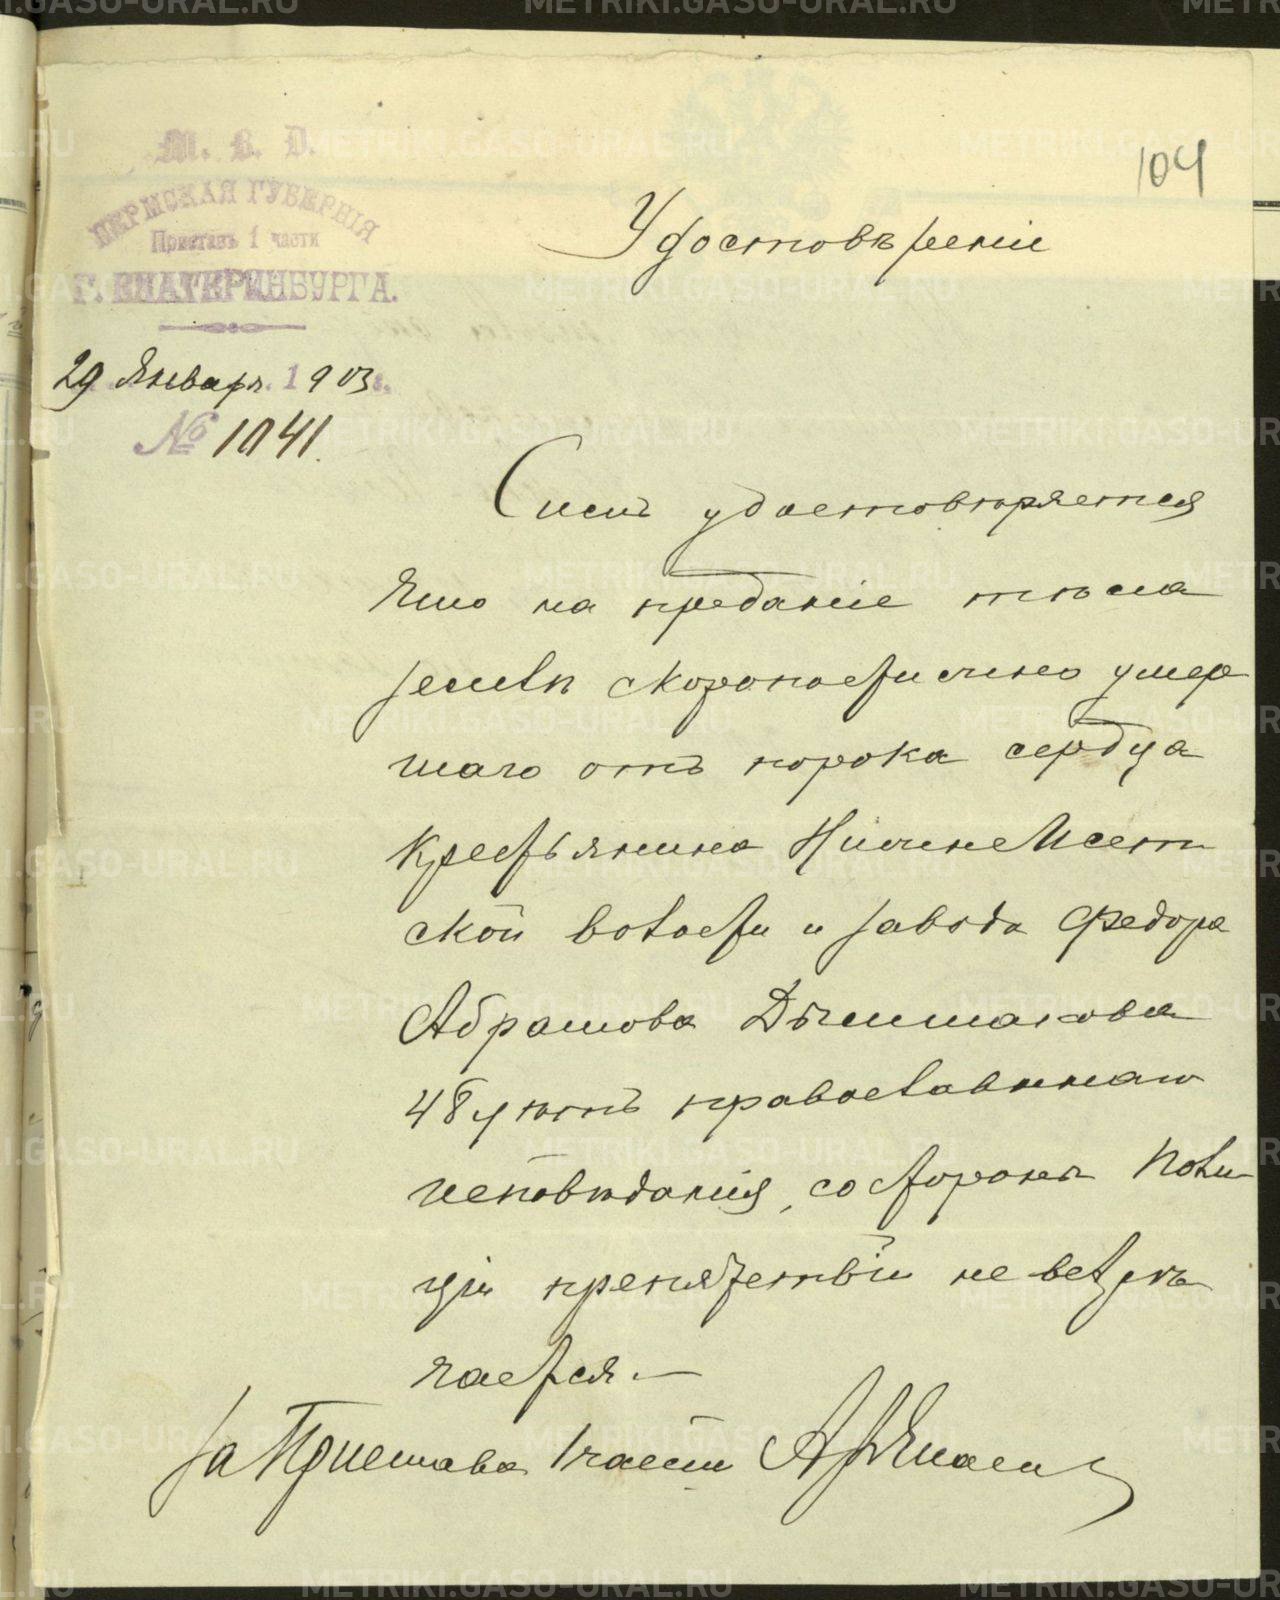 104
М. В. Д.
ПЕРМСКАЯ ГУБЕРНІЯ
Приставъ 1 части
Г. ЕКАТЕРИНБУРГА.
29 Января 1903 г.
№ 1041.
Удостовѣреніе
Симъ удостовѣряется
что на преданіе тѣла
землѣ скоропостижно умер
шаго отъ порока сердца
крестьянина Нижне Исет
ской волости и завода Федора
Абрамова
48 лѣтъ православнаго
исповѣданія, со стороны Поли
ціи препятствій не встрѣ
чается.—
За Пристава 1 части
METRIKI.GASO-URAL.RU